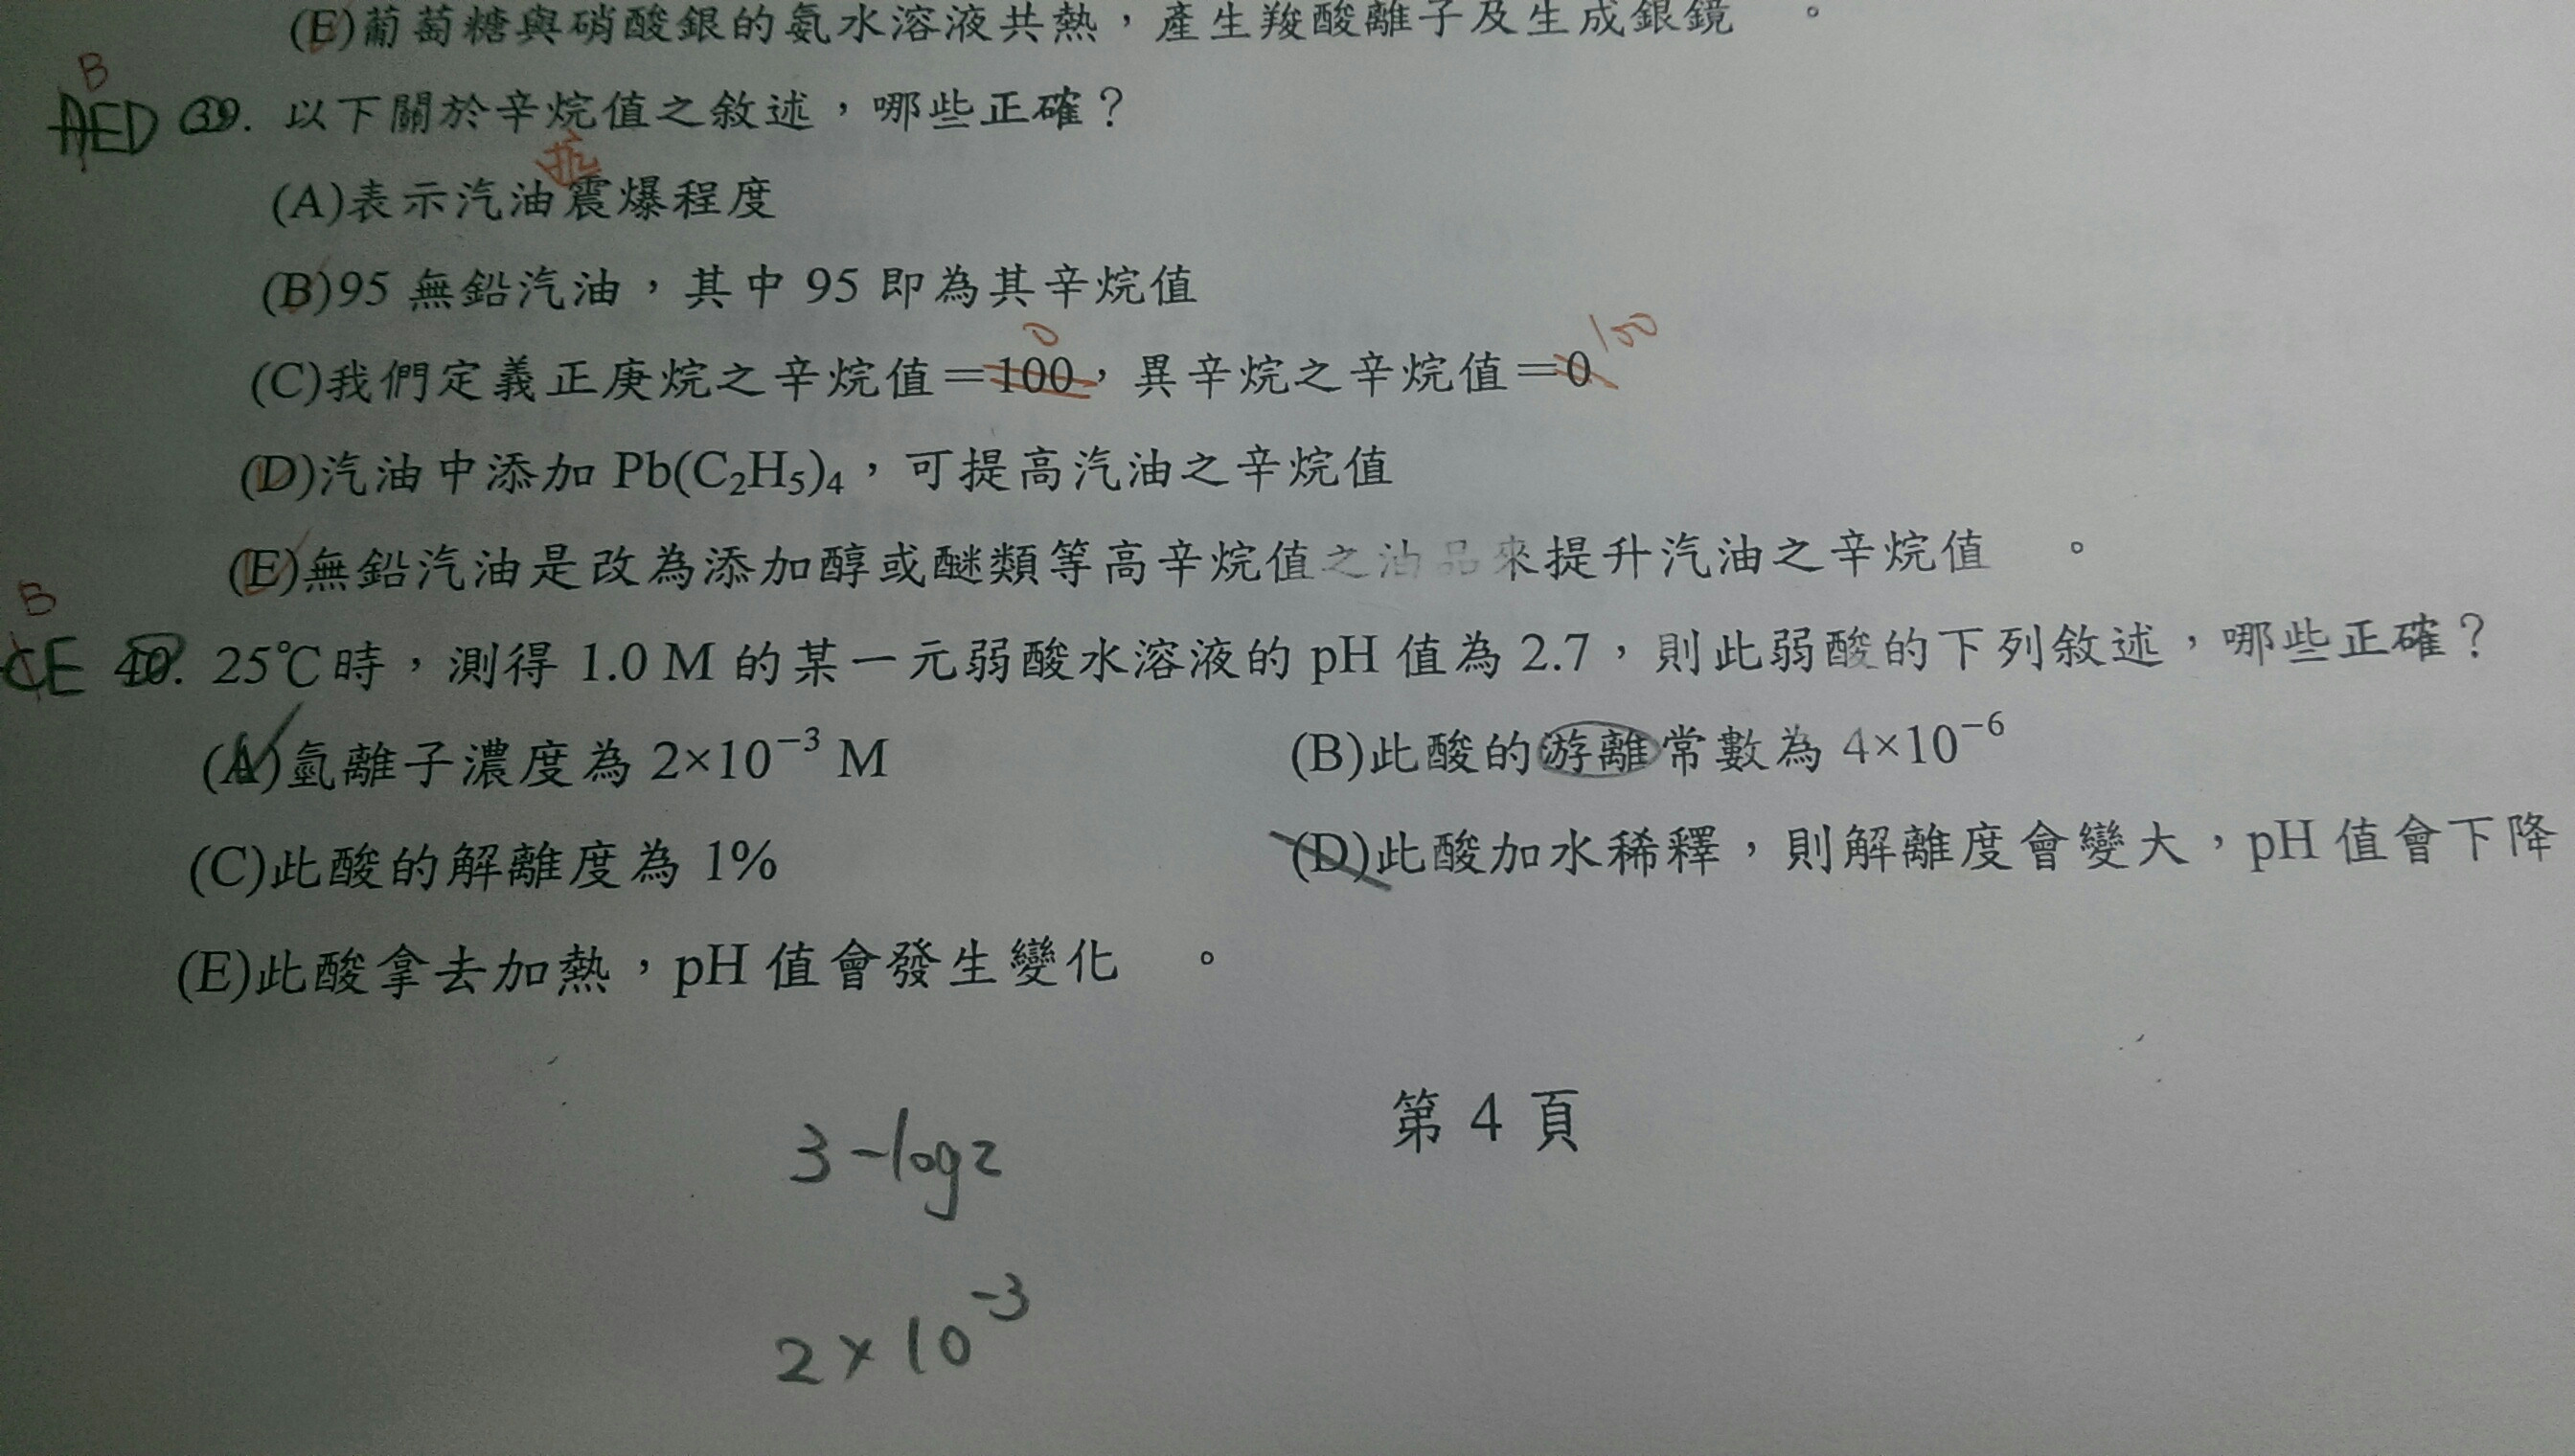 (E)葡萄糖與硝酸銀的氨水溶液共熱，產生羧酸離子及生成銀鏡　。
B
AED 39. 以下關於辛烷值之敘述，哪些正確？
抗
(A)表示汽油震爆程度
(B)95 無鉛汽油，其中 95 即為其辛烷值
0 100
(C)我們定義正庚烷之辛烷值＝100，異辛烷之辛烷值＝0
(D)汽油中添加 Pb(C₂H₅)₄，可提高汽油之辛烷值
(E)無鉛汽油是改為添加醇或醚類等高辛烷值之油品來提升汽油之辛烷值　。
B
CE 40. 25℃時，測得 1.0 M 的某一元弱酸水溶液的 pH 值為 2.7，則此弱酸的下列敘述，哪些正確？
(A)氫離子濃度為 2×10⁻³ M (B)此酸的游離常數為 4×10⁻⁶
(C)此酸的解離度為 1% (D)此酸加水稀釋，則解離度會變大，pH 值會下降
(E)此酸拿去加熱，pH 值會發生變化　。
第 4 頁
3-log2
2×10⁻³